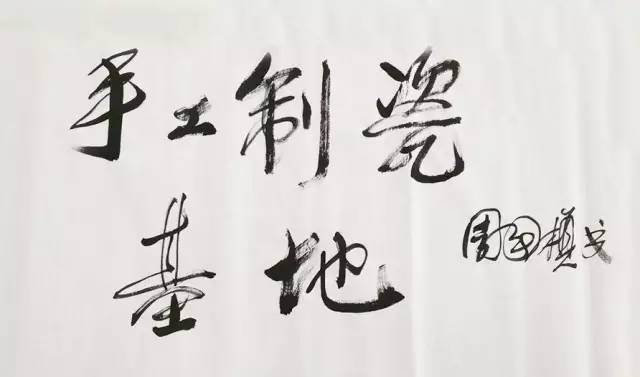 手工制瓷
基地
周国桢书